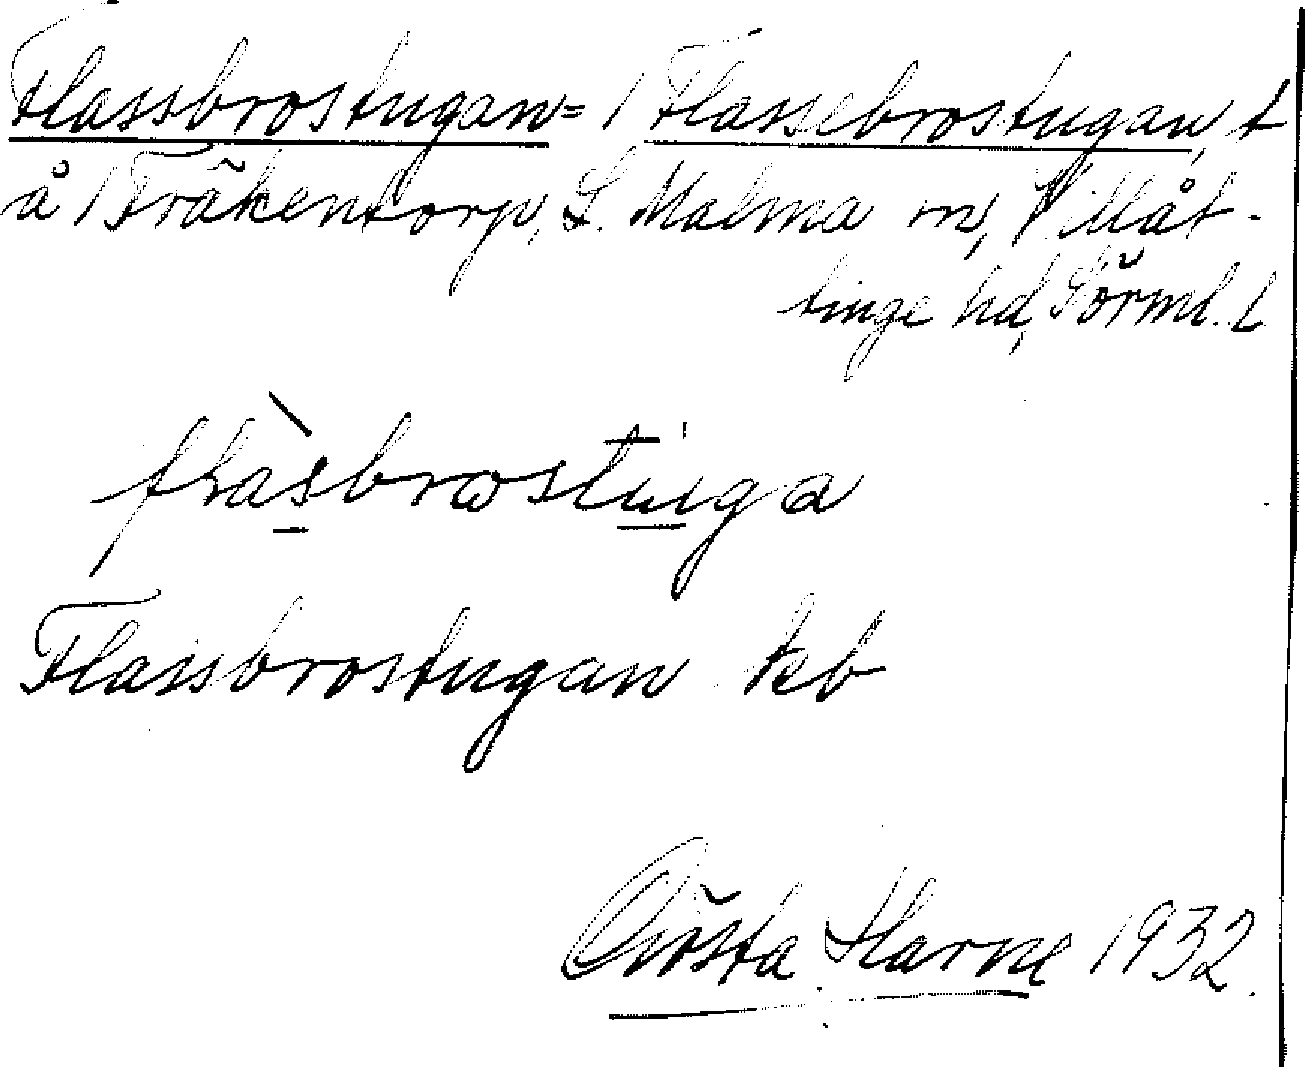 Flassbrostugan = / Flassebrostugan, t
å / Träkentorp, L. Malma sn, Villåt-
tinge hd, Sörml. l.
flàsbrostuga
Flassbrostugan kb
Gösta Harne 1932.